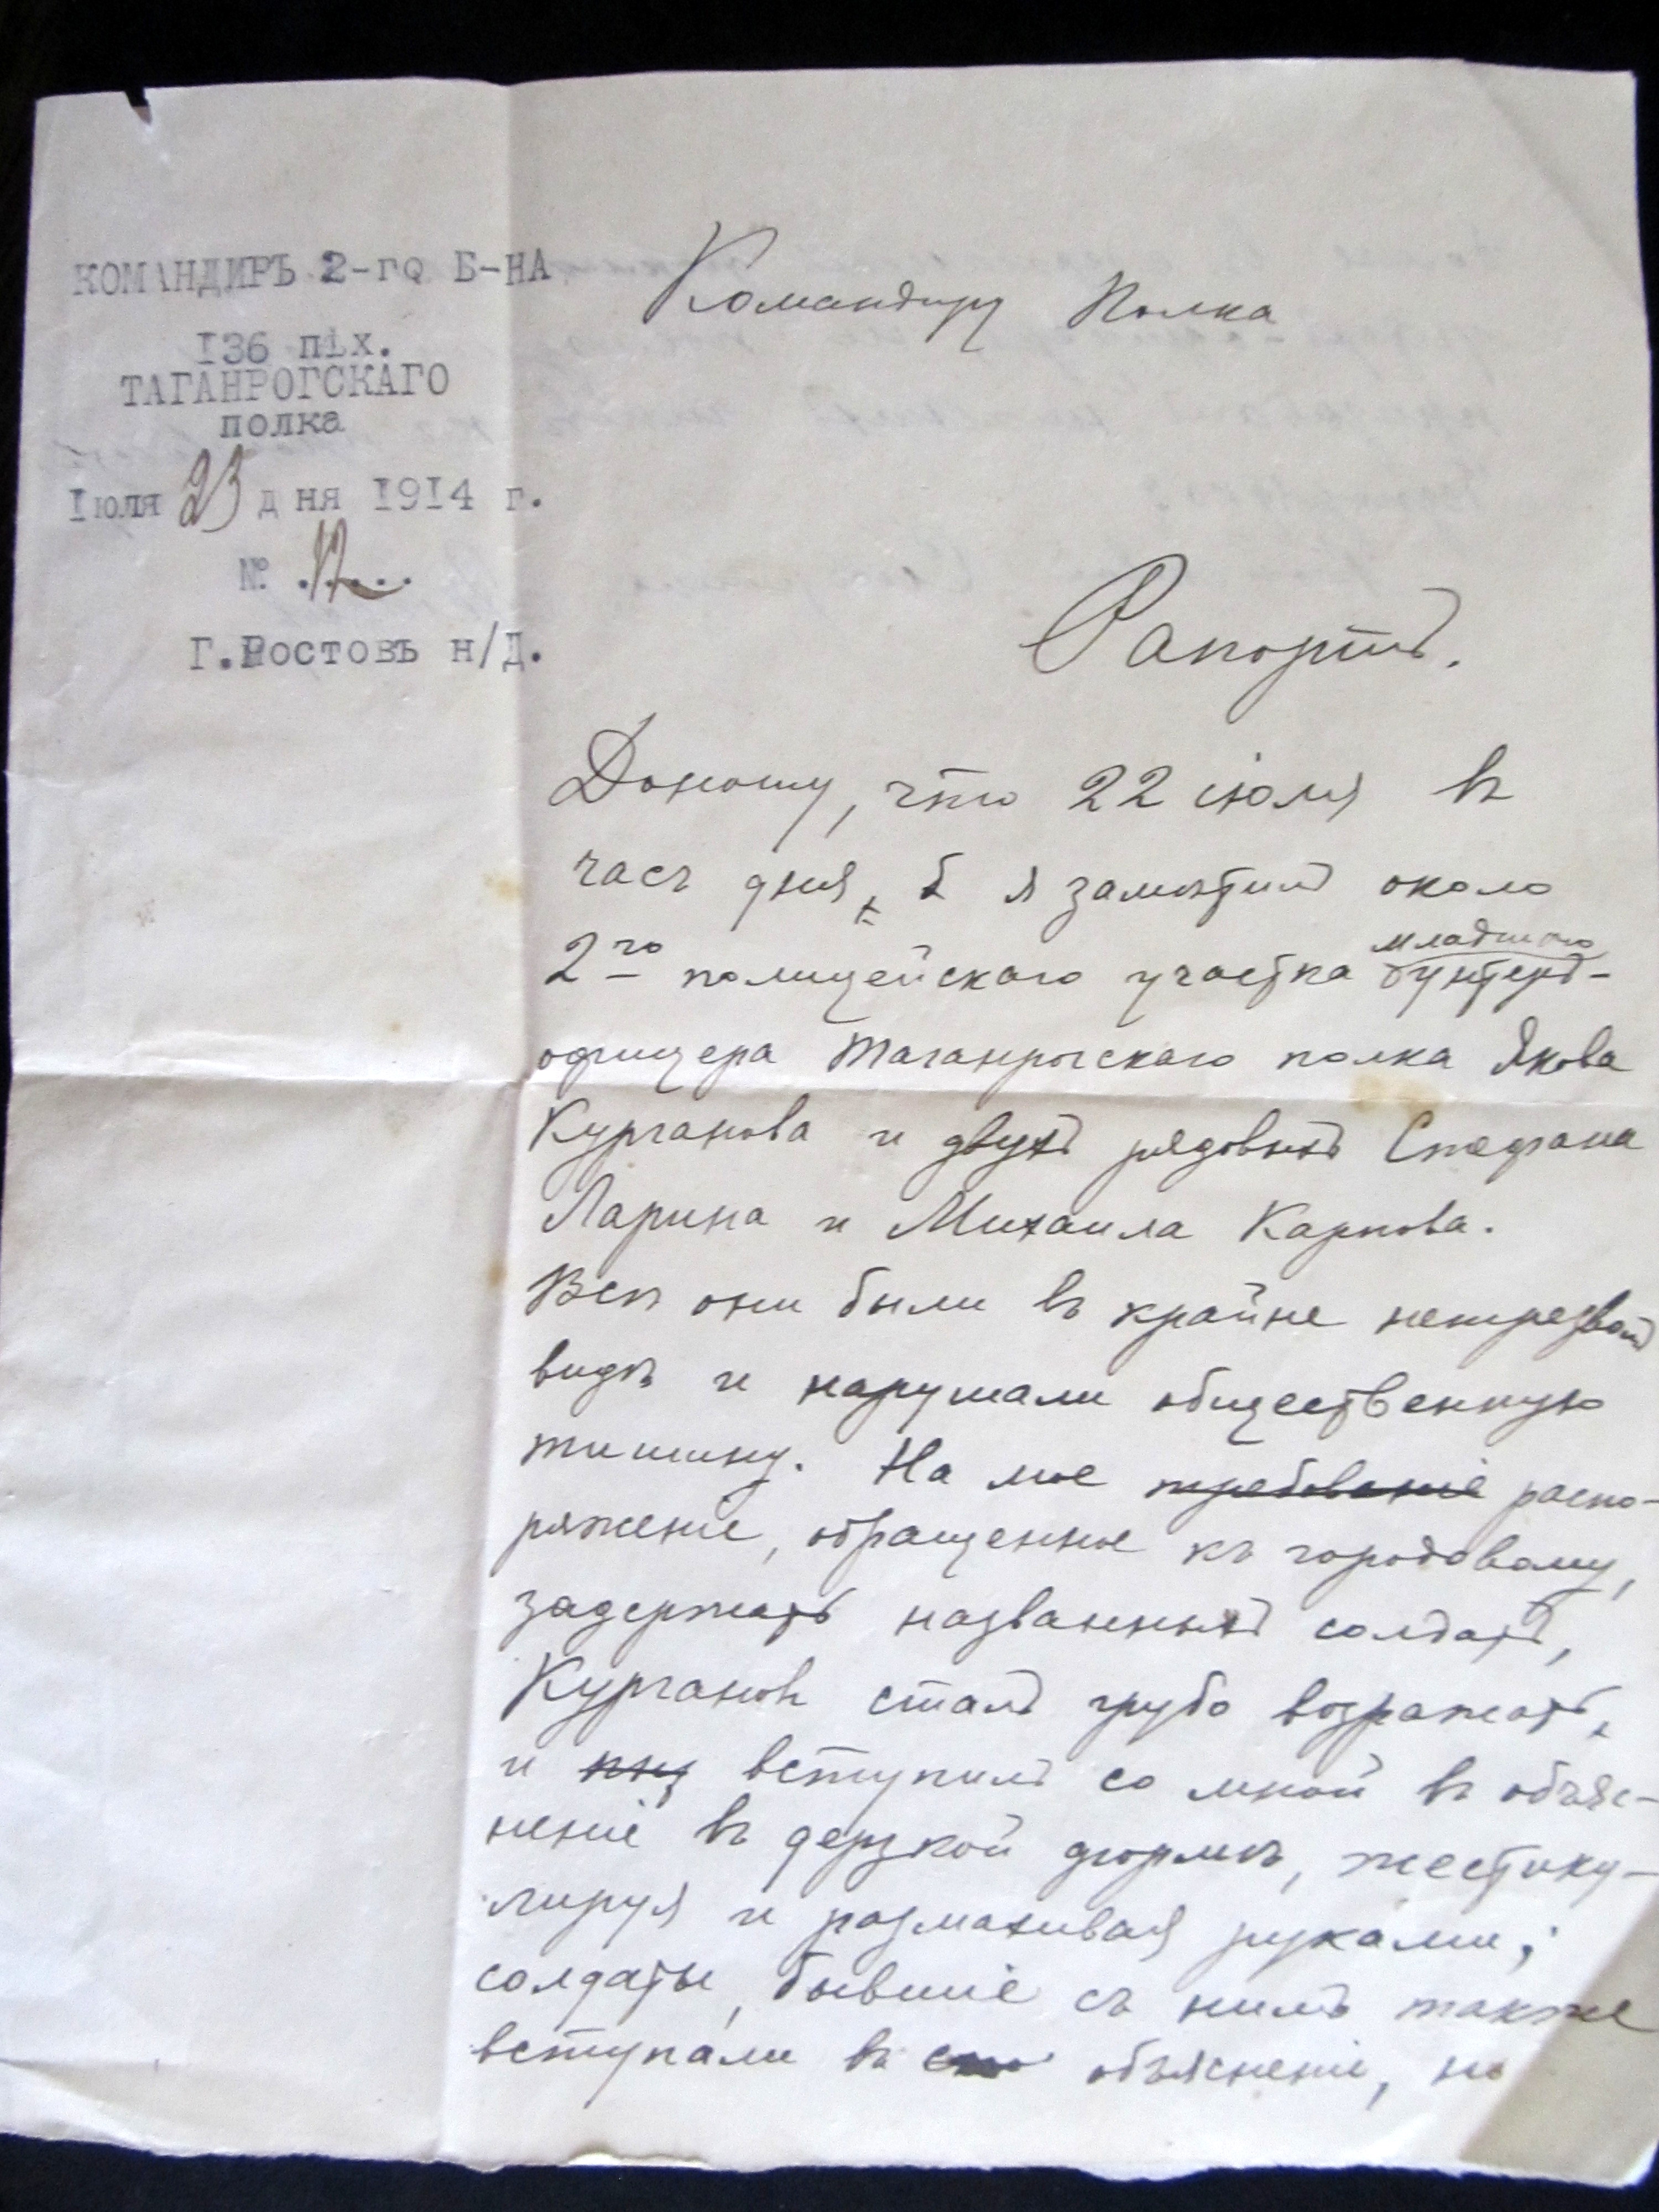 КОМАНДИРЪ 2-го Б-НА
136 пѣх.
ТАГАНРОГСКАГО
полка
Іюля 23 дня 1914 г.
№ 12
Г.Ростовъ н/Д.
Командиру Полка
Рапортъ.
Доношу, что 22 іюля въ
часъ дня, я замѣтилъ около
2го полицейскаго участка младшаго унтеръ-
офицера Таганрогскаго полка Якова
Курганова и двухъ рядовыхъ Стефана
Ларина и Михаила Карпова.
Всѣ они были въ крайне нетрезвомъ
видѣ и нарушали общественную
тишину. На мое требованіе распо-
ряженіе, обращенное къ городовому,
задержать названныхъ солдатъ,
Кургановъ сталъ грубо возражать,
и вступилъ со мной въ объяс-
неніе въ дерзкой формѣ, жестику-
лируя и размахивая руками;
солдаты, бывшіе съ нимъ также
вступали въ объясненіе, но